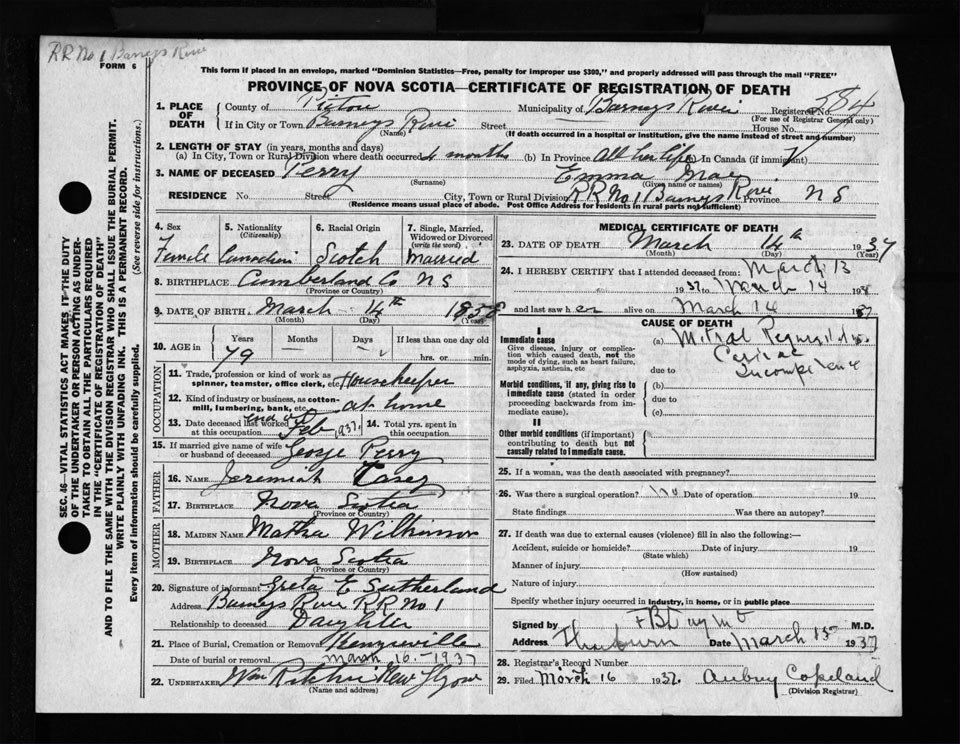 RR No 1 Barneys River
FORM 6
This form if placed in an envelope, marked "Dominion Statistics—Free, penalty for improper use $300," and properly addressed will pass through the mail "FREE"
PROVINCE OF NOVA SCOTIA—CERTIFICATE OF REGISTRATION OF DEATH
SEC. 46—VITAL STATISTICS ACT MAKES IT THE DUTY
OF THE UNDERTAKER OR PERSON ACTING AS UNDER-
TAKER TO OBTAIN ALL THE PARTICULARS REQUIRED
IN THE "CERTIFICATE OF REGISTRATION OF DEATH"
AND TO FILE THE SAME WITH THE DIVISION REGISTRAR WHO SHALL ISSUE THE BURIAL PERMIT.
WRITE PLAINLY WITH UNFADING INK. THIS IS A PERMANENT RECORD.
Every item of information should be carefully supplied. (See reverse side for instructions.)
1. PLACE OF DEATH
County of Pictou Municipality of Barneys River Registered No. 584
(For use of Registrar General only)
If in City or Town Barneys River Street House No.
(Name) (If death occurred in a hospital or institution, give the name instead of street and number)
2. LENGTH OF STAY (in years, months and days)
(a) In City, Town or Rural Division where death occurred 4 months (b) In Province All her life (c) In Canada (if immigrant)
3. NAME OF DECEASED Perry Emma Mae
(Surname) (Given name or names)
RESIDENCE No. Street City, Town or Rural Division RR No 1 Barneys River Province N S
(Residence means usual place of abode. Post Office Address for residents in rural parts not sufficient)
4. Sex 5. Nationality (Citizenship) 6. Racial Origin 7. Single, Married, Widowed or Divorced (write the word)
Female Canadian Scotch Married
8. BIRTHPLACE Cumberland Co N S
(Province or Country)
9. DATE OF BIRTH March 14th 1858
(Month) (Day) (Year)
10. AGE in Years Months Days If less than one day
79 — — hrs. or min.
OCCUPATION
11. Trade, profession or kind of work as spinner, teamster, office clerk, etc. Housekeeper
12. Kind of industry or business, as cotton-mill, lumbering, bank, etc. at home
13. Date deceased last worked at this occupation end of Feb 1937. 14. Total yrs. spent in this occupation
15. If married give name of wife or husband of deceased George Perry
FATHER
16. NAME Jeremiah Casey
17. BIRTHPLACE Nova Scotia
(Province or Country)
MOTHER
18. MAIDEN NAME Martha Wilkinson
19. BIRTHPLACE Nova Scotia
(Province or Country)
20. Signature of informant Greta E Sutherland
Address Barneys River RR No 1
Relationship to deceased Daughter
21. Place of Burial, Cremation or Removal
Date of burial or removal March 16 - 1937
22. UNDERTAKER Wm Ritchie New Glasgow
(Name and address)
MEDICAL CERTIFICATE OF DEATH
23. DATE OF DEATH March 14th 1937
(Month) (Day) (Year)
24. I HEREBY CERTIFY that I attended deceased from: March 13
1937 to March 14 193
and last saw her alive on March 14 1937
CAUSE OF DEATH
I
Immediate cause
Give disease, injury or complication which caused death, not the mode of dying, such as heart failure, asphyxia, asthenia, etc
(a) Mitral
due to Incompetence
Morbid conditions, if any, giving rise to immediate cause (stated in order proceeding backwards from immediate cause).
(b)
due to
(c)
II
Other morbid conditions (if important) contributing to death but not causally related to immediate cause.
25. If a woman, was the death associated with pregnancy?
26. Was there a surgical operation? no Date of operation 19
State findings Was there an autopsy?
27. If death was due to external causes (violence) fill in also the following:—
Accident, suicide or homicide? Date of injury 19
(State which)
Manner of injury
(How sustained)
Nature of injury
Specify whether injury occurred in industry, in home, or in public place
Signed by M.D.
Address Thorburn Date March 15 1937
28. Registrar's Record Number
29. Filed March 16 1937. Aubrey Copeland
(Division Registrar)